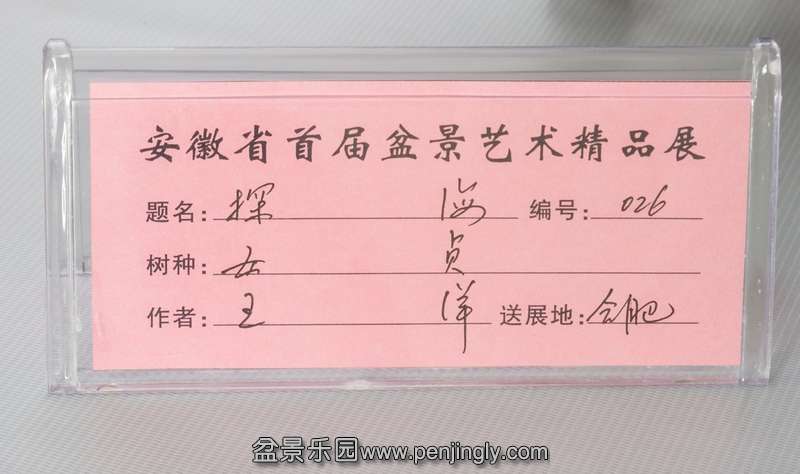 安徽省首届盆景艺术精品展
题名：探海 编号：026
树种：女贞
作者：王洋 送展地：合肥
盆景乐园www.penjingly.com